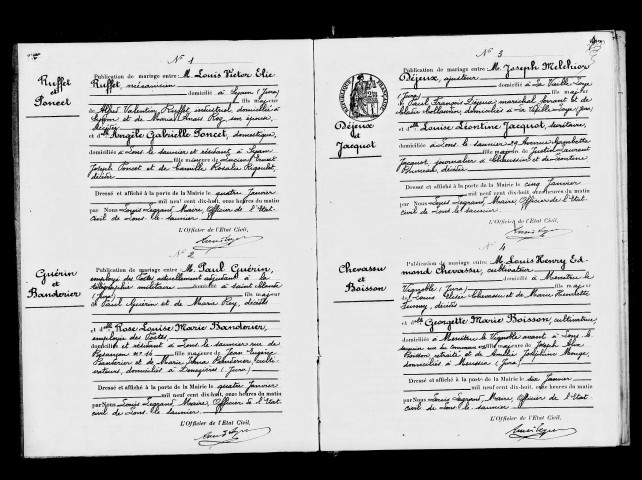 N° 1
Ruffet
et
Poncet
Publication de mariage entre M. Louis Victor Elie
Ruffet, mécanicien
domicilié à Syam (Jura)
fils majeur
de Alfred Valentin Ruffet, industriel, domicilié à
Syam et de Maria Anaïs Roz son épouse,
et d'elle Angèle Gabrielle Poncet, domestique,
domiciliée à Lons le saunier et résidant à Syam
fille mineure de Lucien Ernest
Joseph Poncet et de Camille Rosalie Rigoulet,
décédée
Dressé et affiché à la porte de la Mairie le quatre Janvier
mil neuf cent dix-huit, onze heures du matin
par Nous Louis Legrand, Maire, Officier de l'Etat
civil de Lons le saunier.
L'Officier de l'Etat Civil,
N° 2
Guérin
et
Banderier
Publication de mariage entre M. Paul Guérin,
employé des Postes actuellement adjudant à la
télégraphie militaire domicilié à Saint Claude
(Jura) fils majeur
de Paul Guérin et de Marie Rey, décédés
et d'elle Rose Louise Marie Banderier,
employée des Postes
domiciliée et résidant à Lons le saunier rue de
Besançon N° 16 fille majeure de Jean Eugène
Banderier et de Marie Banderier, culti-
vateurs, domiciliés à (Jura)
Dressé et affiché à la porte de la Mairie le quatre Janvier
mil neuf cent dix-huit, onze heures du matin
par Nous Louis Legrand, Maire, Officier de l'Etat
civil de Lons le saunier
L'Officier de l'Etat Civil,
N° 3
RÉPUBLIQUE FRANÇAISE
Déjeux
et
Jacquot
Publication de mariage entre M. Joseph Melchior
Déjeux, ajusteur
domicilié à La Vieille Loye
(Jura) fils majeur
de Paul François Déjeux, maréchal ferrant et de
domiciliés à La Vieille Loye (Jura)
et d'elle Louise Léontine Jacquot, lingère,
domiciliée à Lons le saunier 29 Avenue Gambetta
fille majeure de Justin Laurent
Jacquot, journalier à et de Léontine
décédée
Dressé et affiché à la porte de la Mairie le cinq Janvier
mil neuf cent dix-huit, onze heures du matin
par Nous Louis Legrand, Maire, Officier de l'Etat
civil de Lons le saunier.
L'Officier de l'Etat Civil,
N° 4
Chevassu
et
Boisson
Publication de mariage entre M. Louis Henry Ed
mond Chevassu, cultivateur
domicilié à Menétru le
Vignoble (Jura) fils majeur
de Louis Chevassu et de Marie Henriette
décédés
et d'elle Georgette Marie Boisson, cultivatrice,
domiciliée à Menétru le Vignoble avant à Lons le
saunier rue du commerce fille majeure de Joseph
Boisson retraité et de Amélie Joséphine Monge,
domiciliés à (Jura)
Dressé et affiché à la porte de la Mairie le dix Janvier
mil neuf cent dix-huit, onze heures du matin
par Nous Louis Legrand, Maire, Officier de l'Etat
civil de Lons le saunier
L'Officier de l'Etat Civil,